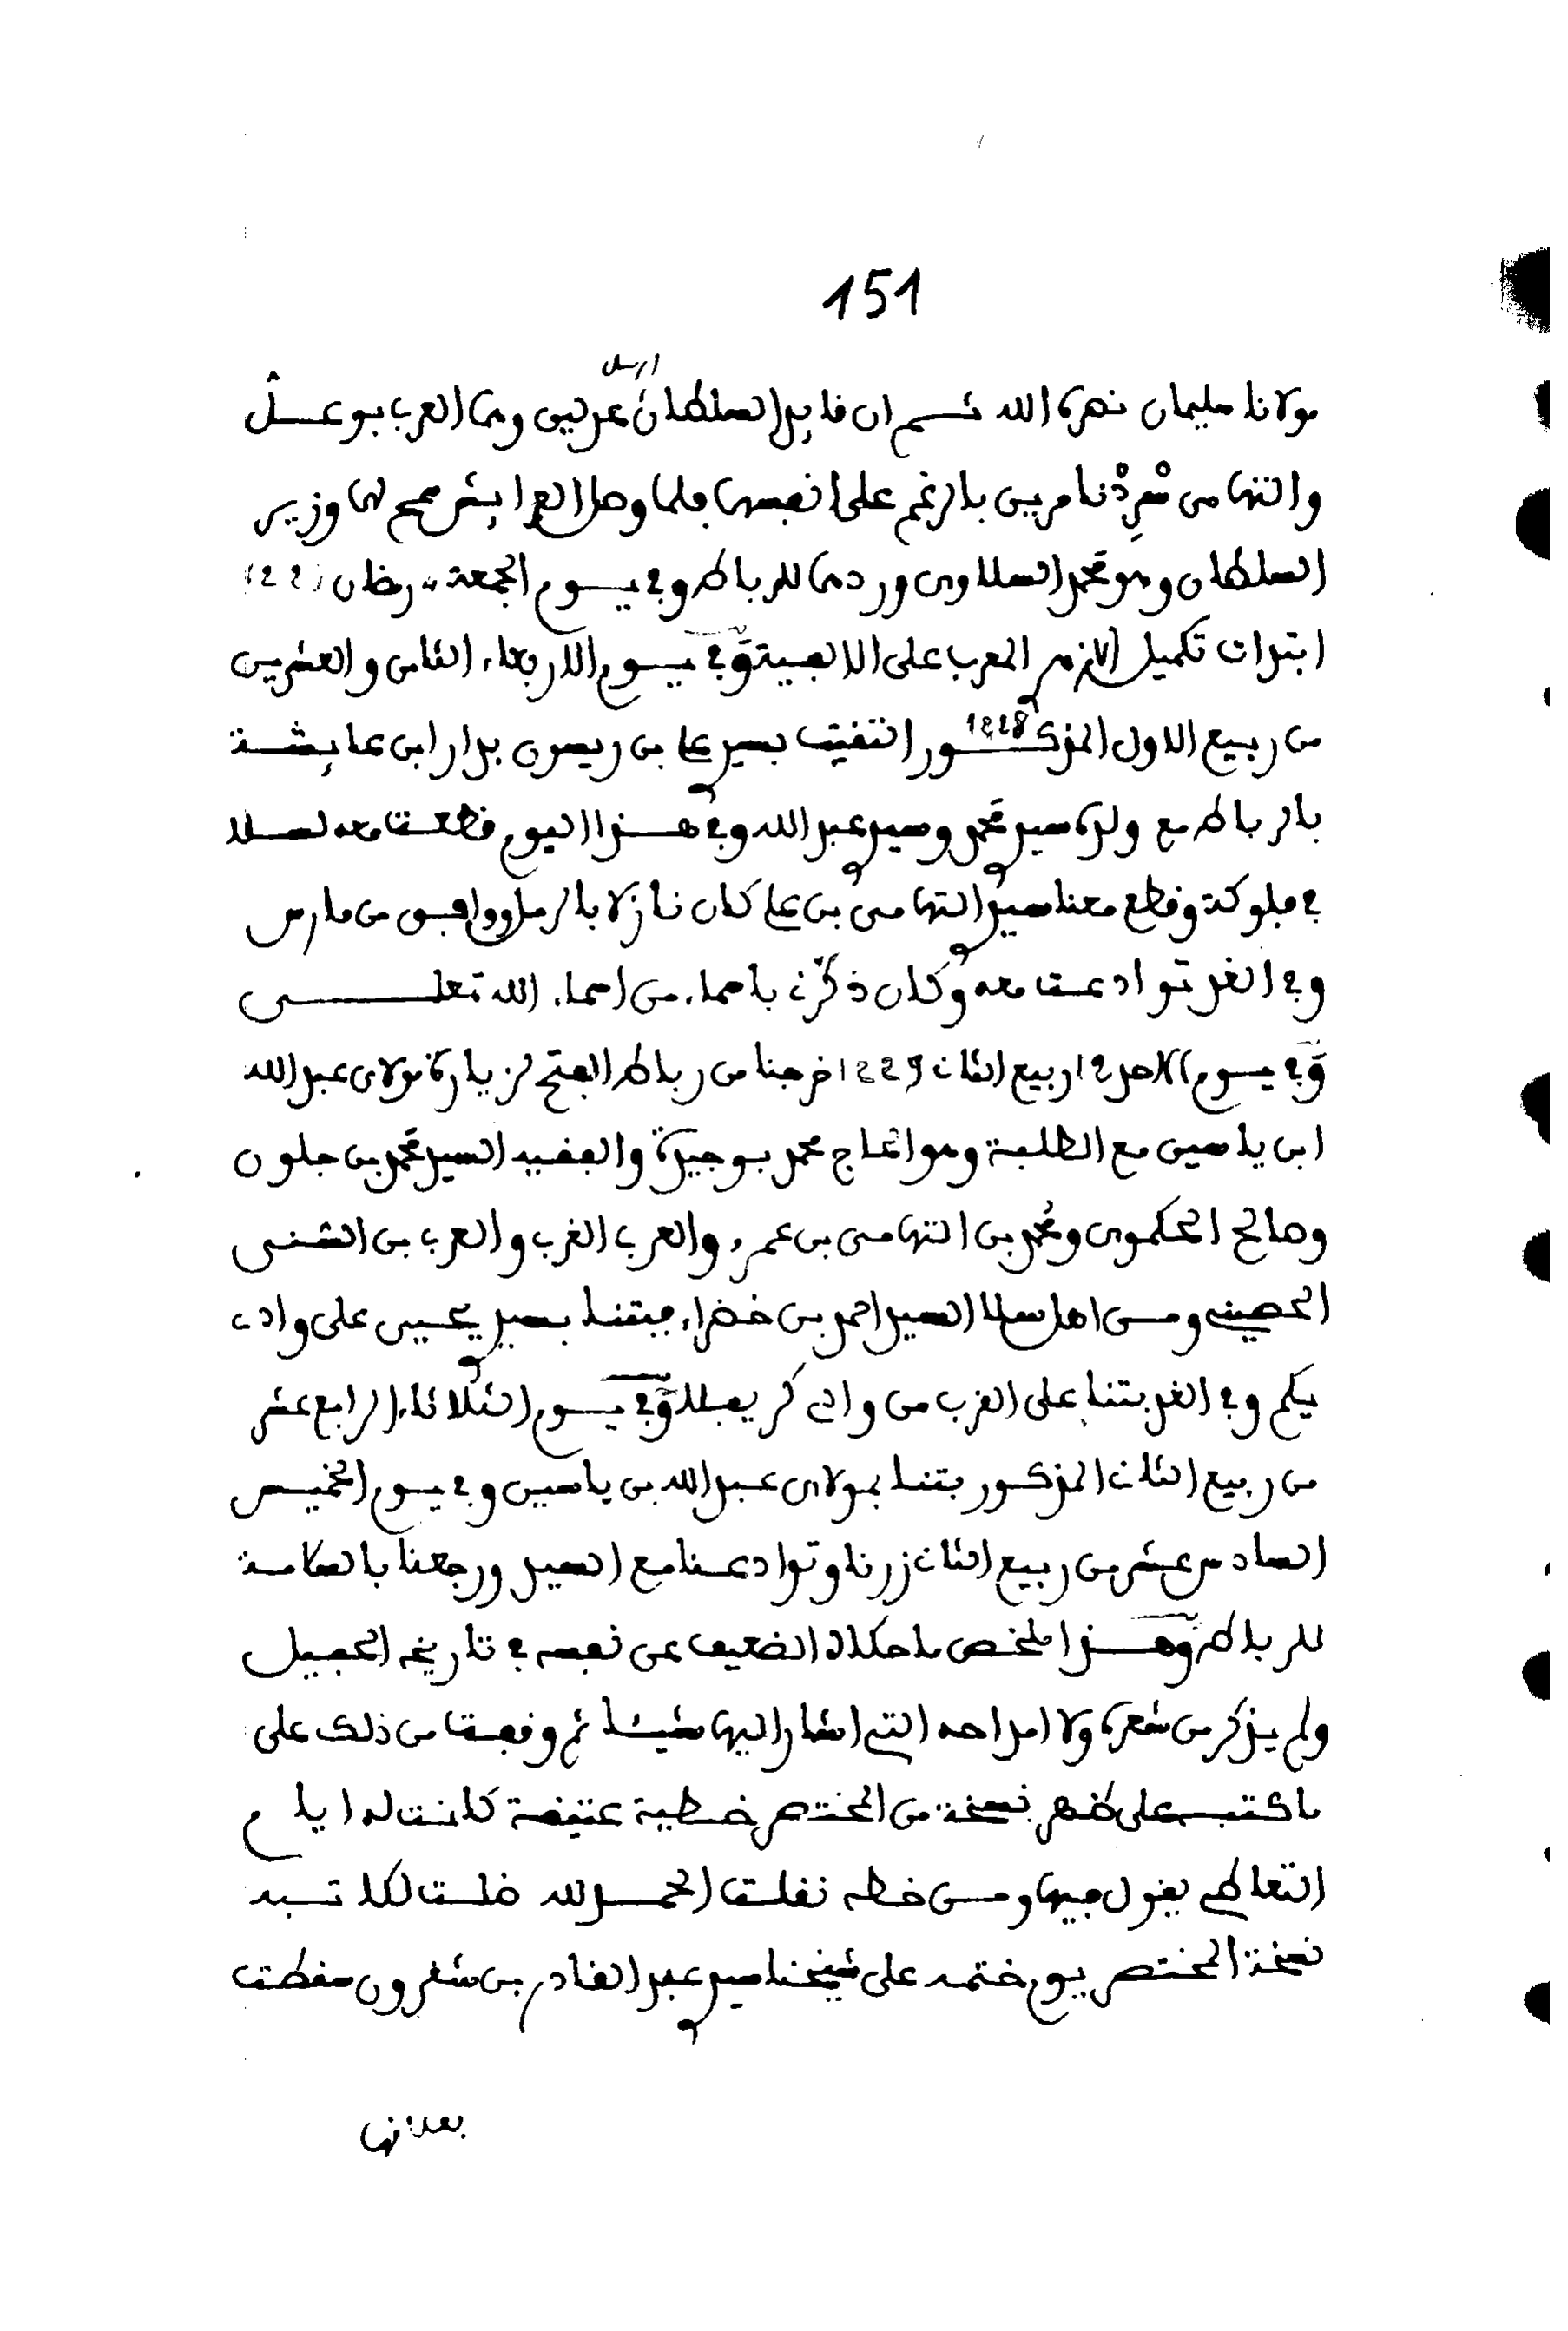 151
ارسل
مولانا سليمان نصره الله ثم ان قايد السلطان عدلين وهما العرب بوعسل
والتهامى مرين بالرغم على انفسهما فلما وصلا العرايش سمح لهما وزير
السلطان وهو محمد السلاوى وردهما للرباط وفى يوم الجمعة رمضان
ابتدات تكميل المعرب على الالفية وفى يوم الاربعاء الثامن والعشرين
من ربيع الاول المذكور 1228 التقيت بسيدى على بن ريسون بدار ابن عايشة
بالرباط مع ولده سيدى محمد وسيدى عبد الله وفى هذا اليوم قطعت معه لسلا
فى فلوكة وقطع معنا سيدى التهامى بن على كان نازلا بالرمل ووافق من مارس
وفى الغد توادعت معه وكان ذكرنى باسماء من اسماء الله تعلى
وفى يوم الاحد 12 ربيع الثانى 1229 خرجنا من رباط الفتح لزيارة مولاى عبد الله
ابن ياسين مع الطلبة وهو الحاج محمد بوجيدة والفقيه السيد محمد بن جلون
وصالح الحكموى ومحمد بن التهامى بن عمرو والعرب الغرب والعرب بن الشنى
الحصينى ومن اهل سلا السيد احمد بن خضراء فبتنا بسيدى يحيى على وادى
يكم وفى الغد بتنا على القرب من وادى كريفلا وفى يوم الثلاثاء الرابع عشر
من ربيع الثانى المذكور بتنا بمولاى عبد الله بن ياسين وفى يوم الخميس
السادس عشر من ربيع الثانى زرنا وتوادعنا مع السيد ورجعنا بالسلامة
للرباط وهذا ملخص ما حكاه الضعيف عن نفسه فى تاريخه الحفيل
ولم يذكر من شعره ولا امداحه التى اشار اليها شيئا ثم وقفت من ذلك على
ما كتبه على ظهر نسخة من المختصر خطية عتيقة كانت له ايام
التعاطى يقول فيها ومن خطه نقلت الحمد لله قلت لكاتبه
نسخة المختصر يوم ختمه على شيخنا سيدى عبد القادر بن شقرون سقطت